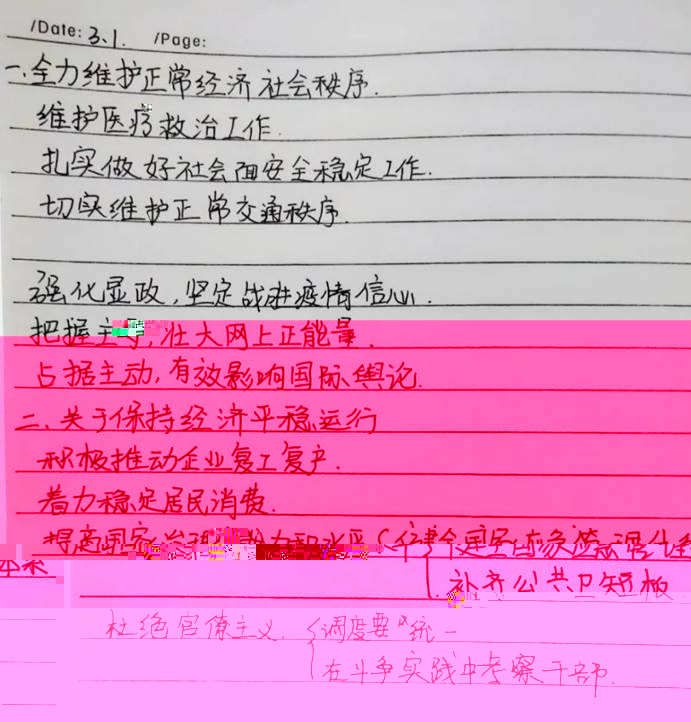 /Date: 3.1. /Page:
一.全力维护正常经济社会秩序.
维护医疗救治工作.
扎实做好社会面安全稳定工作.
切实维护正常交通秩序.
强化显政,坚定战胜疫情信心.
把握主导,壮大网上正能量.
占据主动,有效影响国际舆论.
二、关于保持经济平稳运行
积极推动企业复工复产.
着力稳定居民消费.
提高国家治理 力和水平 健全国家应急管理
体系
补齐公共卫短板
杜绝官僚主义. 调度要统一
在斗争实践中考察干部.